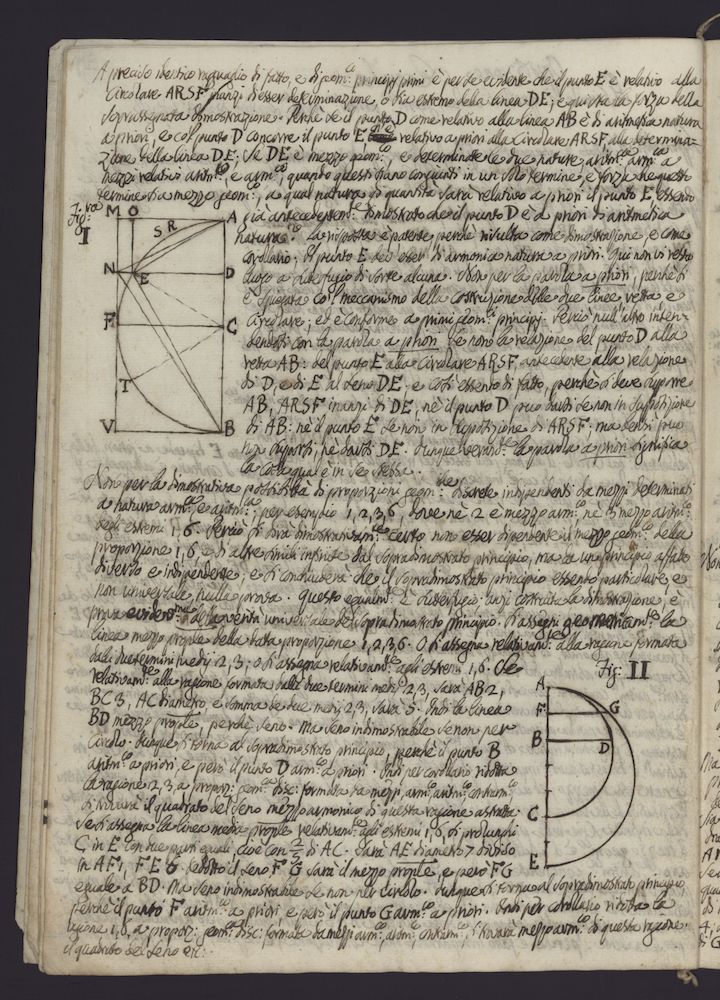 A preciso identico ragguaglio di fatto, e di geom.ci principj primi è per se evidente che il punto E è relativo alla
Circolare ARSF inanzi d'esser determinazione, o sia estremo della linea DE; e qui sta la forza della
sopra assegnata dimostrazione. Perché se il punto D come relativo alla linea AB è di aritmetica natura
a priori, e col punto D concorre il punto E relativo a priori alla Circolare ARSF, alla determina-
zione della linea DE. Se DE è mezzo geom.co, e determinate le due nature aritm.ca arm.ca a
mezzi relativi aritm.co, e arm.co, quando questi siano congiunti in un solo termine, è forza che questo
termine sia mezzo geom.co, a qual natura di quantità sarà relativo a priori il punto E, essendo
già antecedentem.te dimostrato che il punto D è a priori di aritmetica
natura? La risposta è patente, perché risulta come dimostrazione, e come
corollario; Il punto E dev'esser di armonica natura a priori. Qui non vi resta
luogo a sutterfugio di sorte alcuna. Non per la parola a priori, perché si
è spiegata col meccanismo della costruzione delle due linee retta e
Circolare; ed è conforme a primi geom.ci principj. Perciò null'altro inten-
dendosi con la parola a priori, se non la relazione del punto D alla
retta AB: del punto E alla Circolare ARSF, antecedente alla relazione
di D, e di E al seno DE. e così essendo di fatto, perché si deve supporre
AB, ARSF inanzi di DE, nè il punto D può darsi se non in supposizione
di AB: nè il punto E se non in supposizione di ARSF; ma bensì può
non supporsi, nè darsi DE. dunque veram.te la parola a priori significa
la cosa qual'è in se stessa.
Non per la dimostrativa possibilità di proporzioni geom.che discrete indipendenti da mezzi determinati
a natura arm.ca e aritm.ca; per esempio 1, 2, 3, 6, dove nè 2 è mezzo arm.co, nè 3 mezzo aritm.co
degli estremi 1, 6. Perciò si dirà dimostrativam.te certo non esser dipendente il mezzo geom.co della
proporzione 1, 6, e di altre simili infinite dal sopradimostrato principio, ma da un principio affatto
diverso e indipendente; e si concluderà che il sopradimostrato principio essendo particolare, e
non universale, nulla prova. Questo egualm.te è sutterfugio: anzi costruita la dimostrazione, è
prova evidentem.te della verità universale del sopradimostrato principio. Si assegni geometricam.te la
linea mezzo prop.le della data proporzione 1, 2, 3, 6. O si assegna relativam.te alla ragione formata
dalli due termini medj 2, 3; o si assegna relativam.te agli estremi 1, 6. Se
relativam.te alla ragione formata dalli due termini medj 2, 3, sarà AB 2,
BC 3, AC diametro, e somma de' due medj 2, 3, sarà 5. Indi la linea
BD mezzo prop.le, perché seno. Ma seno indimostrabile se non per
Circolo. Dunque si torna al sopradimostrato principio, perché il punto B
aritm.co a priori, e però il punto D arm.co a priori. Indi per corollario ridotta
la ragione 2, 3 a proporz: geom.ca disc: formata da mezzi arm.co, aritm.co, contarm.co
si troverà il quadrato del seno mezzo armonico di questa ragione astratta.
Se si assegna la linea media prop.le relativam.te agli estremi 1, 6, si prolunghi
C in E con due parti eguali, cioè con 2/5 di AC. Sarà AE diametro 7 diviso
in AF 1, FE 6. Dedotto il seno FG sarà il mezzo prop.le, e però FG
eguale a BD. Ma seno indimostrabile se non per circolo. Dunque si torna al sopradimostrato principio,
perché il punto F aritm.co a priori, e però il punto G arm.co a priori. Indi per corollario ridotta la
ragione 1, 6, a proporz: geom.ca disc: formata da mezzi arm.co, aritm.co, contarm.co, si troverà mezzo arm.co di questa ragione
il quadrato del seno etc:
Fig:ra
I
M O A
S R
N E D
F C
T
V B
Fig: II
A
F G
B D
C
E